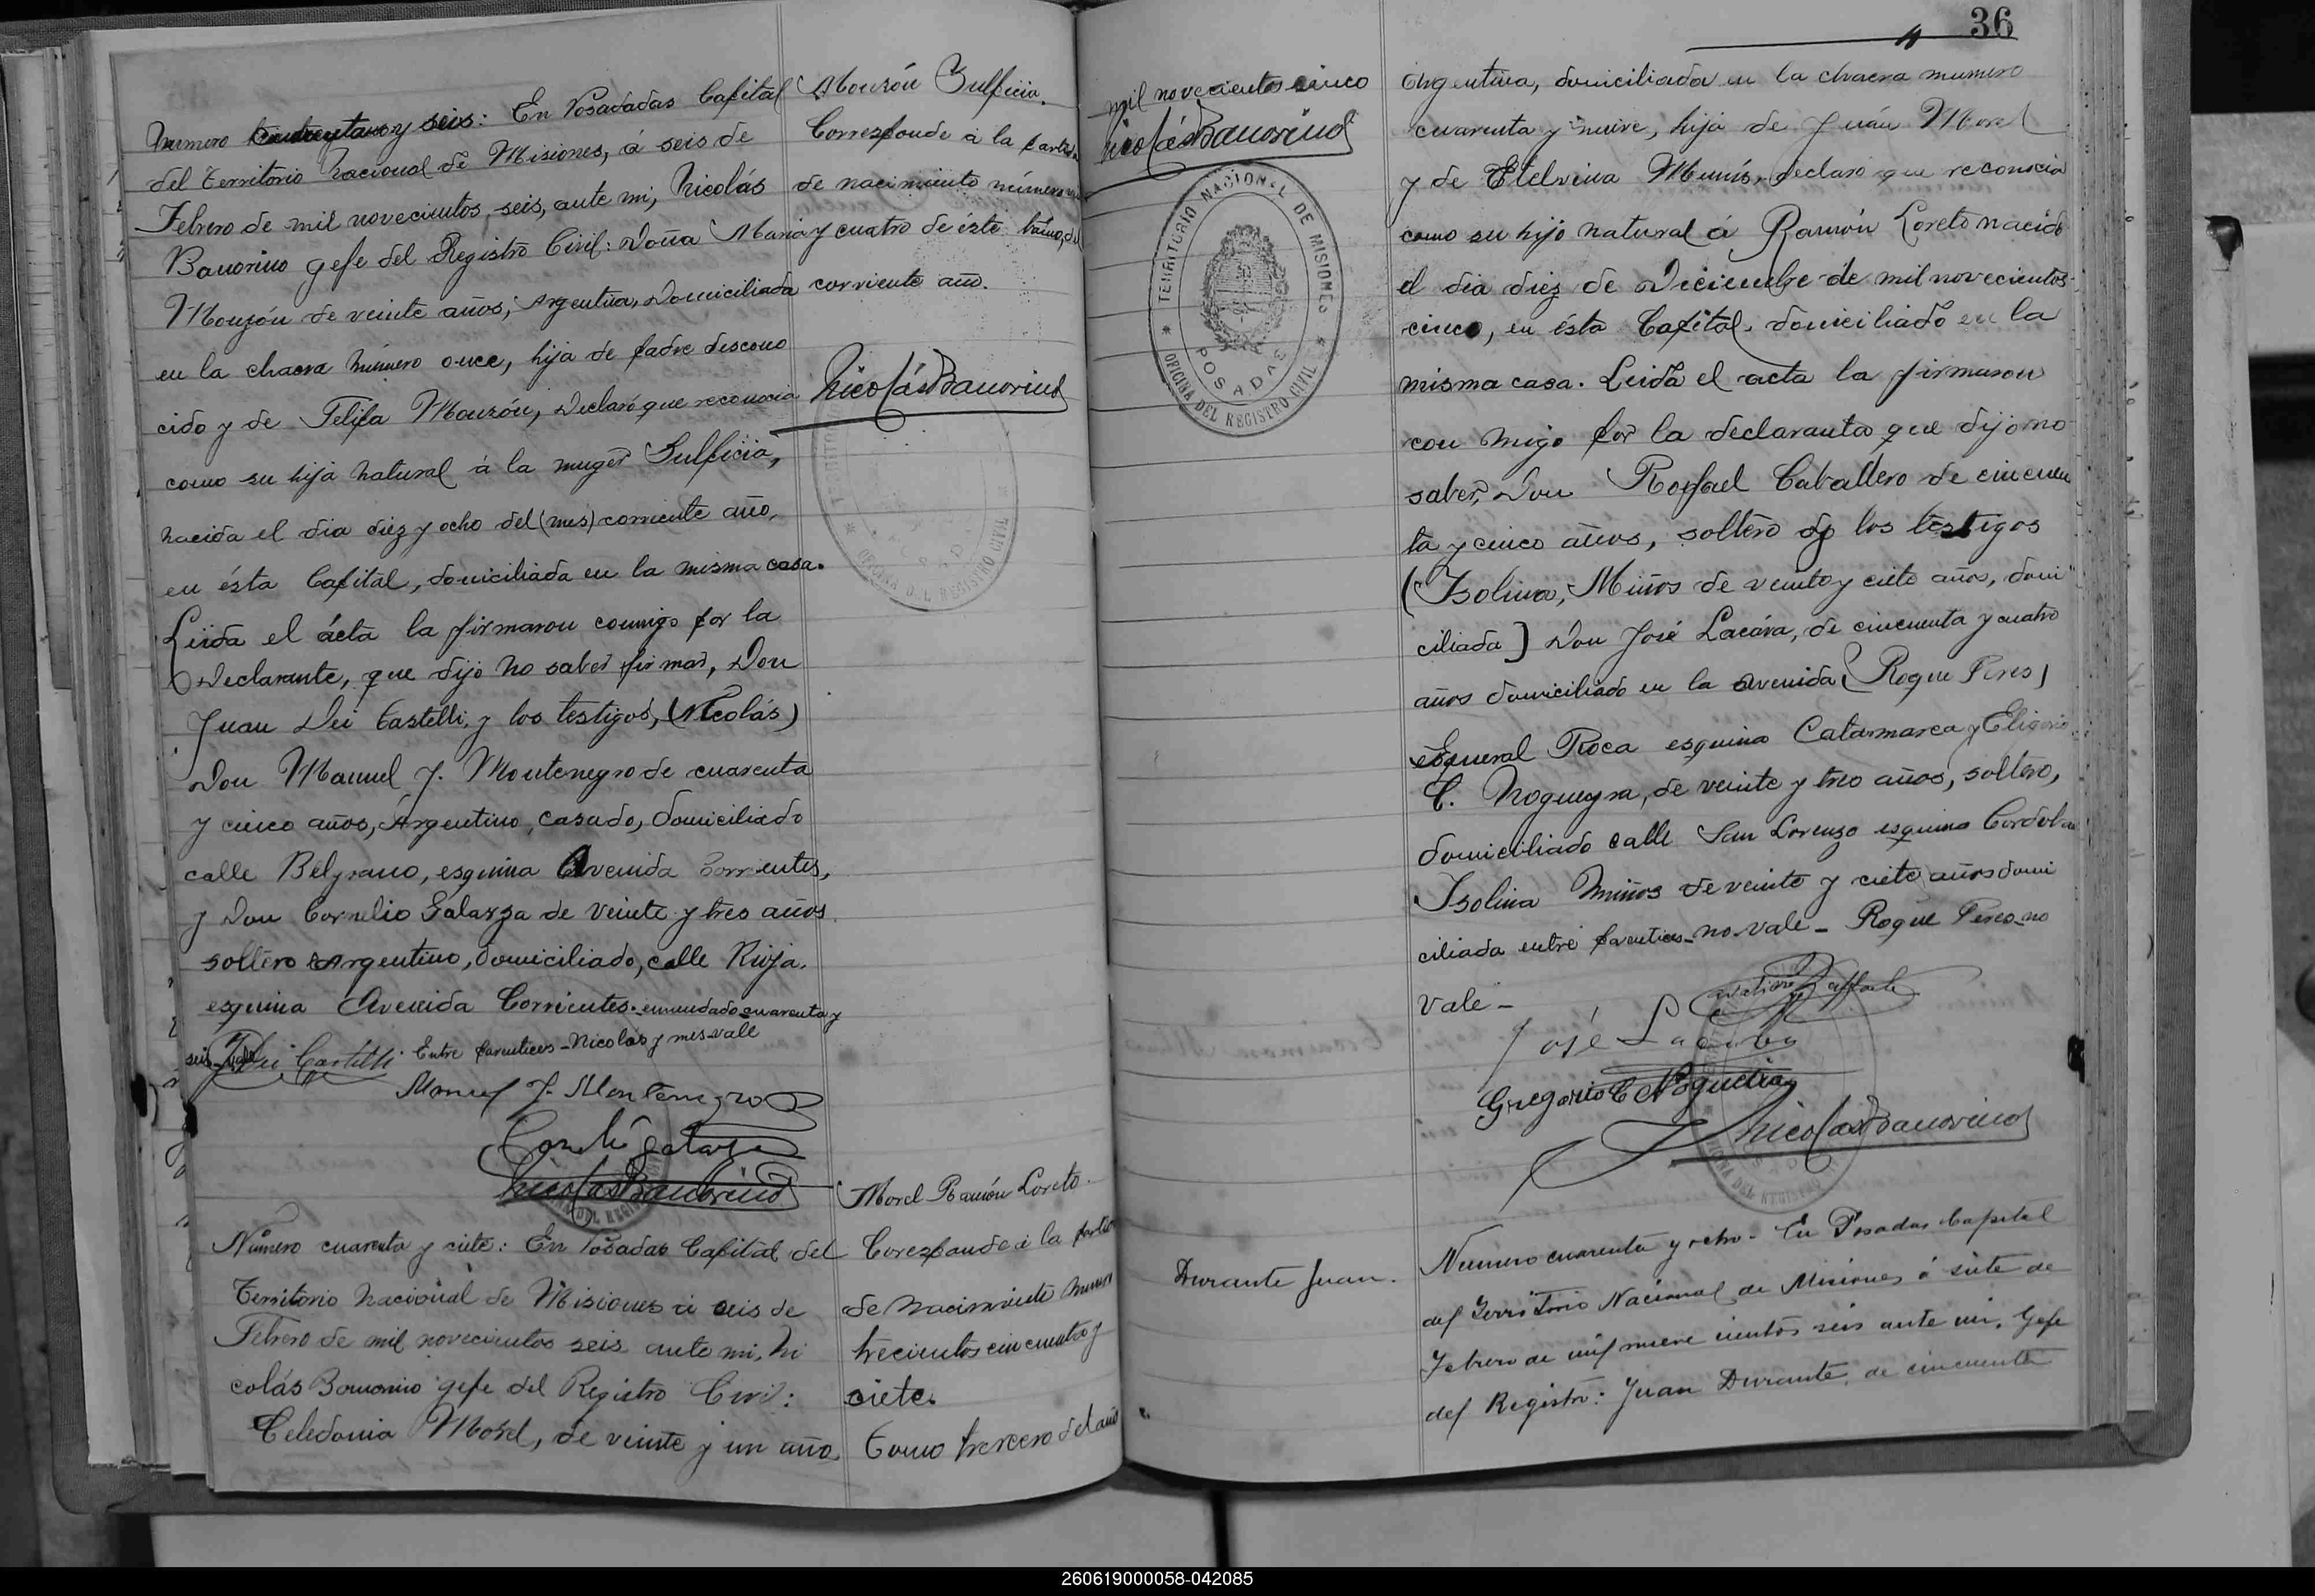 Número cuarenta y seis: En Posadadas Capital
del Territorio Nacional de Misiones, á seis de
Febrero de mil novecientos seis, ante mi, Nicolás
Bauorino gefe del Registro Civil: Doña Maria
Mouzón de veinte años, Argentina, Domiciliada
en la chacra número once, hija de padre descono
cido y de Felipa Mouzón, Declaró que reconocia
como su hija natural á la muger Sulpicia,
nacida el dia diez y ocho del (mes) corriente año,
en ésta Capital, domiciliada en la misma casa.
Leida el ácta la firmaron conmigo por la
Declarante, que dijo no saber firmar, Don
Juan Dei Castelli, y los testigos, (Nicolás)
Don Manuel J. Montenegro de cuarenta
y cinco años, Argentino, casado, domiciliado
calle Belgrano, esquina Avenida Corrientes,
y Don Cornelio Galarza de veinte y tres años
soltero Argentino, domiciliado, calle Rioja
esquina Avenida Corrientes. enmendado cuarenta y
seis vale Entre parentices - Nicolás y mes vale
J Dei Castelli
Manuel J. Montenegro
Cornelio Galarza
Nicolás Bauorino
Número cuarenta y ciete: En Posadas Capital del
Territorio Nacional de Misiones á seis de
Febrero de mil novecientos seis ante mi, Ni
colás Bauorino gefe del Registro Civil:
Celedonia Morel, de veinte y un año
Mouzón Sulpicia.
Corresponde á la partida
de nacimiento número
y cuatro de éste tomo, del
corriente año.
Nicolás Bauorino
OFICINA DEL REGISTRO CIVIL
Morel Ramón Loreto.
Corresponde á la partida
de nacimiento numero
trecientos cincuenta y
ciete.
Tomo tercero del año
36
mil novecientos cinco
Nicolás Bauorino
TERRITORIO NACIONAL DE MISIONES
POSADAS
OFICINA DEL REGISTRO CIVIL
Argentina, domiciliada en la chacra numero
cuarenta y nueve, hija de Juán Morel
y de Etelvina Munís, declaro que reconocia
como su hijo natural á Ramón Loreto nacido
el dia diez de Diciembre de mil novecientos
cinco, en ésta Capital, domiciliado en la
misma casa. Leida el acta la firmaron
con migo por la declaranta que dijo no
saber, Don Rafael Caballero de cincuen
ta y cinco años, soltero y los testigos
(Isolina, Miños de veinte y ciete años, domi
ciliada) Don José Lacáva, de cincuenta y cuatro
años domiciliado en la avenida (Roque Peres)
General Roca esquina Catarmarca y Eligorio
C. Nogueyra, de veinte y tres años, soltero,
domiciliado calle San Lorenzo esquina Cordoba
Isolina Miños de veinte y ciete años domi
ciliada entre parentices - no vale - Roque Peres no
vale -
José Lacava
Gregorio C Nogueira
Nicolás Bauorino
Durante Juan.
Numero cuarenta y ocho - En Posadas Capital
del Territorio Nacional de Misiones á siete de
Febrero de mil nueve cientos seis ante mi, Gefe
del Registro: Juan Durante, de cincuenta
260619000058-042085